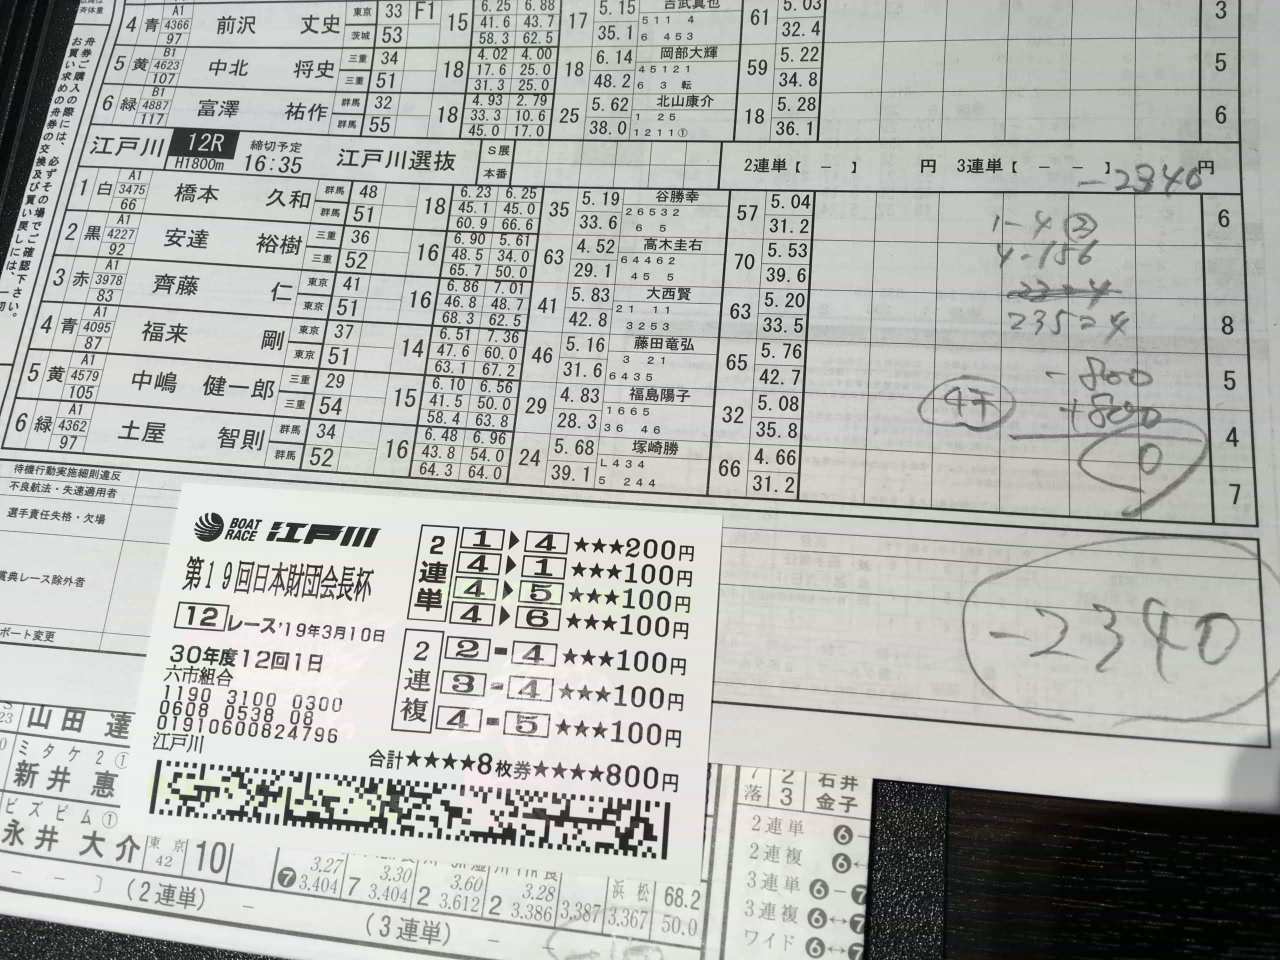 4 青 A1 4366 97 前沢 丈史 東京 茨城 33 53 F1 15 6.25 6.88 41.6 43.7 58.3 62.5 17 5.15 35.1 吉武真也 511 4 6 453 61 5.03 32.4 3
5 黄 B1 4623 107 中北 将史 三重 三重 34 51 18 4.02 4.00 17.6 25.0 31.3 25.0 18 6.14 48.2 岡部大輝 45121 6 3 転 59 5.22 34.8 5
6 緑 B1 4887 117 富澤 祐作 群馬 群馬 32 55 18 4.93 2.79 33.3 10.6 45.0 17.0 25 5.62 38.0 北山康介 1 25 1211① 18 5.28 36.1 6
江戸川 12R H1800m 締切予定 16:35 江戸川選抜 S展 本番 2連単【 － 】 円 3連単【 － － 】 円
-2340
1 白 A1 3475 66 橋本 久和 群馬 群馬 48 51 18 6.23 6.25 45.1 45.0 60.9 66.6 35 5.19 33.6 谷勝幸 26532 6 5 57 5.04 31.2 6
2 黒 A1 4227 92 安達 裕樹 三重 三重 36 52 16 6.90 5.61 48.5 34.0 65.7 50.0 63 4.52 29.1 高木圭右 64462 45 5 70 5.53 39.6
3 赤 A1 3978 83 齊藤 仁 東京 東京 41 51 16 6.86 7.01 46.8 48.7 68.3 62.5 41 5.83 42.8 大西賢 21 11 3253 63 5.20 33.5 8
4 青 A1 4095 87 福来 剛 東京 東京 37 51 14 6.51 7.36 47.6 60.0 63.1 67.2 46 5.16 31.6 藤田竜弘 3 21 6435 65 5.76 42.7 5
5 黄 A1 4579 105 中嶋 健一郎 三重 三重 29 54 15 6.10 6.56 41.5 50.0 58.4 63.8 29 4.83 28.3 福島陽子 1665 36 46 32 5.08 35.8 4
6 緑 A1 4362 97 土屋 智則 群馬 群馬 34 52 16 6.48 6.96 43.8 54.0 64.3 64.0 24 5.68 39.1 塚崎勝 L434 5 244 66 4.66 31.2 7
1-4 ②
4-156
235=4
-800
+800
0
-2340
待機行動実施細則違反
不良航法・失速適用者
選手責任失格・欠場
賞典レース除外者
ボート変更
お買い求めの舟券の交換及び買い戻しには、一切
舟券ご購入の際には、必ずその場でご確認下さい。
BOAT RACE 江戸川
第19回日本財団会長杯
12 レース'19年3月10日
30年度12回1日
六市組合
1190 3100 0300
0608 0538 08
01910600824796
江戸川
2連単
1 ▶ 4 ★★★200円
4 ▶ 1 ★★★100円
4 ▶ 5 ★★★100円
4 ▶ 6 ★★★100円
2連複
2 - 4 ★★★100円
3 - 4 ★★★100円
4 - 5 ★★★100円
合計★★★★8枚券★★★★800円
山田 達
ミタケ2①
新井 恵
ビズビム①
永井 大介 東京 42 10
❼ 3.27 3.404 7 3.30 3.404 2 3.60 3.612 2 3.28 3.386 3.387 浜松 3.367 68.2 50.0
－ － 〕(2連単) －
(3連単) － －
7 2 石井
落 3 金子
2連単 ❻－
2連複 ❻↔
3連単 ❻－❼
3連複 ❻↔❼
ワイド ❻↔❼